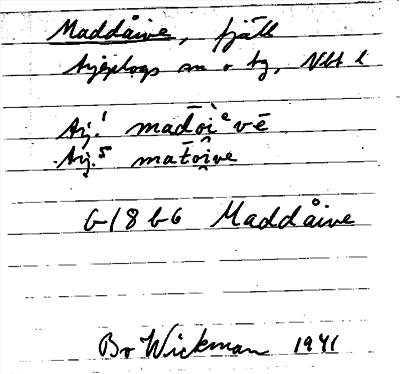 Maddåive, fjäll
Arjeplogs sn o tg, Nbt l
Arj.¹ mad̄òiᵉvē
Arj.⁵ mat̄oî̭ve
G18 b6 Maddåive
Bo Wickman 1941